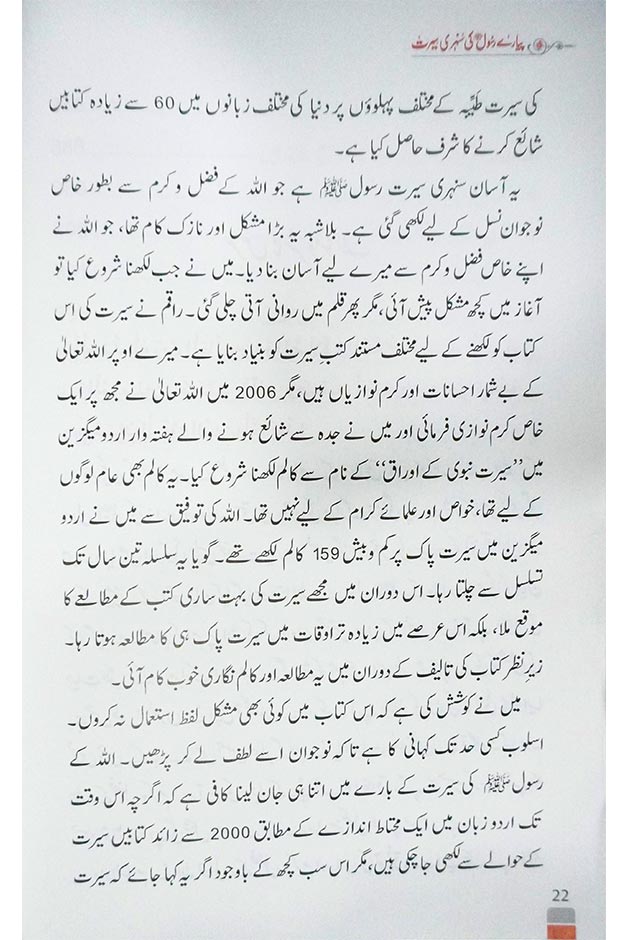 پیارے رسول ﷺ کی سنہری سیرت
کی سیرت طیّبہ کے مختلف پہلوؤں پر دنیا کی مختلف زبانوں میں 60 سے زیادہ کتابیں
شائع کرنے کا شرف حاصل کیا ہے۔
یہ آسان سنہری سیرت رسول ﷺ ہے جو اللہ کے فضل و کرم سے بطور خاص
نوجوان نسل کے لیے لکھی گئی ہے۔ بلاشبہ یہ بڑا مشکل اور نازک کام تھا، جو اللہ نے
اپنے خاص فضل و کرم سے میرے لیے آسان بنا دیا۔ میں نے جب لکھنا شروع کیا تو
آغاز میں کچھ مشکل پیش آئی، مگر پھر قلم میں روانی آتی چلی گئی۔ راقم نے سیرت کی اس
کتاب کو لکھنے کے لیے مختلف مستند کتبِ سیرت کو بنیاد بنایا ہے۔ میرے اوپر اللہ تعالیٰ
کے بے شمار احسانات اور کرم نوازیاں ہیں، مگر 2006 میں اللہ تعالیٰ نے مجھ پر ایک
خاص کرم نوازی فرمائی اور میں نے جدہ سے شائع ہونے والے ہفتہ وار اردو میگزین
میں ’’سیرت نبوی کے اوراق‘‘ کے نام سے کالم لکھنا شروع کیا۔ یہ کالم بھی عام لوگوں
کے لیے تھا، خواص اور علمائے کرام کے لیے نہیں تھا۔ اللہ کی توفیق سے میں نے اردو
میگزین میں سیرت پاک پر کم و بیش 159 کالم لکھے تھے۔ گویا یہ سلسلہ تین سال تک
تسلسل سے چلتا رہا۔ اس دوران میں مجھے سیرت کی بہت ساری کتب کے مطالعے کا
موقع ملا، بلکہ اس عرصے میں زیادہ تر اوقات میں سیرت پاک ہی کا مطالعہ ہوتا رہا۔
زیرِ نظر کتاب کی تالیف کے دوران میں یہ مطالعہ اور کالم نگاری خوب کام آئی۔
میں نے کوشش کی ہے کہ اس کتاب میں کوئی بھی مشکل لفظ استعمال نہ کروں۔
اسلوب کسی حد تک کہانی کا ہے تاکہ نوجوان اسے لطف لے کر پڑھیں۔ اللہ کے
رسول ﷺ کی سیرت کے بارے میں اتنا ہی جان لینا کافی ہے کہ اگرچہ اس وقت
تک اردو زبان میں ایک محتاط اندازے کے مطابق 2000 سے زائد کتابیں سیرت
کے حوالے سے لکھی جا چکی ہیں، مگر اس سب کچھ کے باوجود اگر یہ کہا جائے کہ سیرت
22